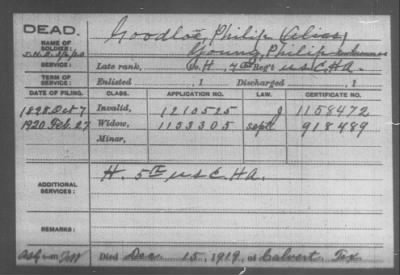 DEAD.
NAME OF SOLDIER:
Goodloe, Philip (Alias)
Young, Philip
SERVICE:
Late rank, Co. H, Reg't U.S.C.H.A.
Enlisted , 1 Discharged , 1
DATE OF FILING. CLASS. APPLICATION NO. LAW. CERTIFICATE NO.
1898 Oct 7 Invalid, 1210525 1158472
1920 Feb. 27 Widow, 1153305 Sept 918489
Minor,
ADDITIONAL SERVICES:
H. 5th U.S.C.H.A.
REMARKS:
Died Dec 15, 1919, at Calvert, Tex